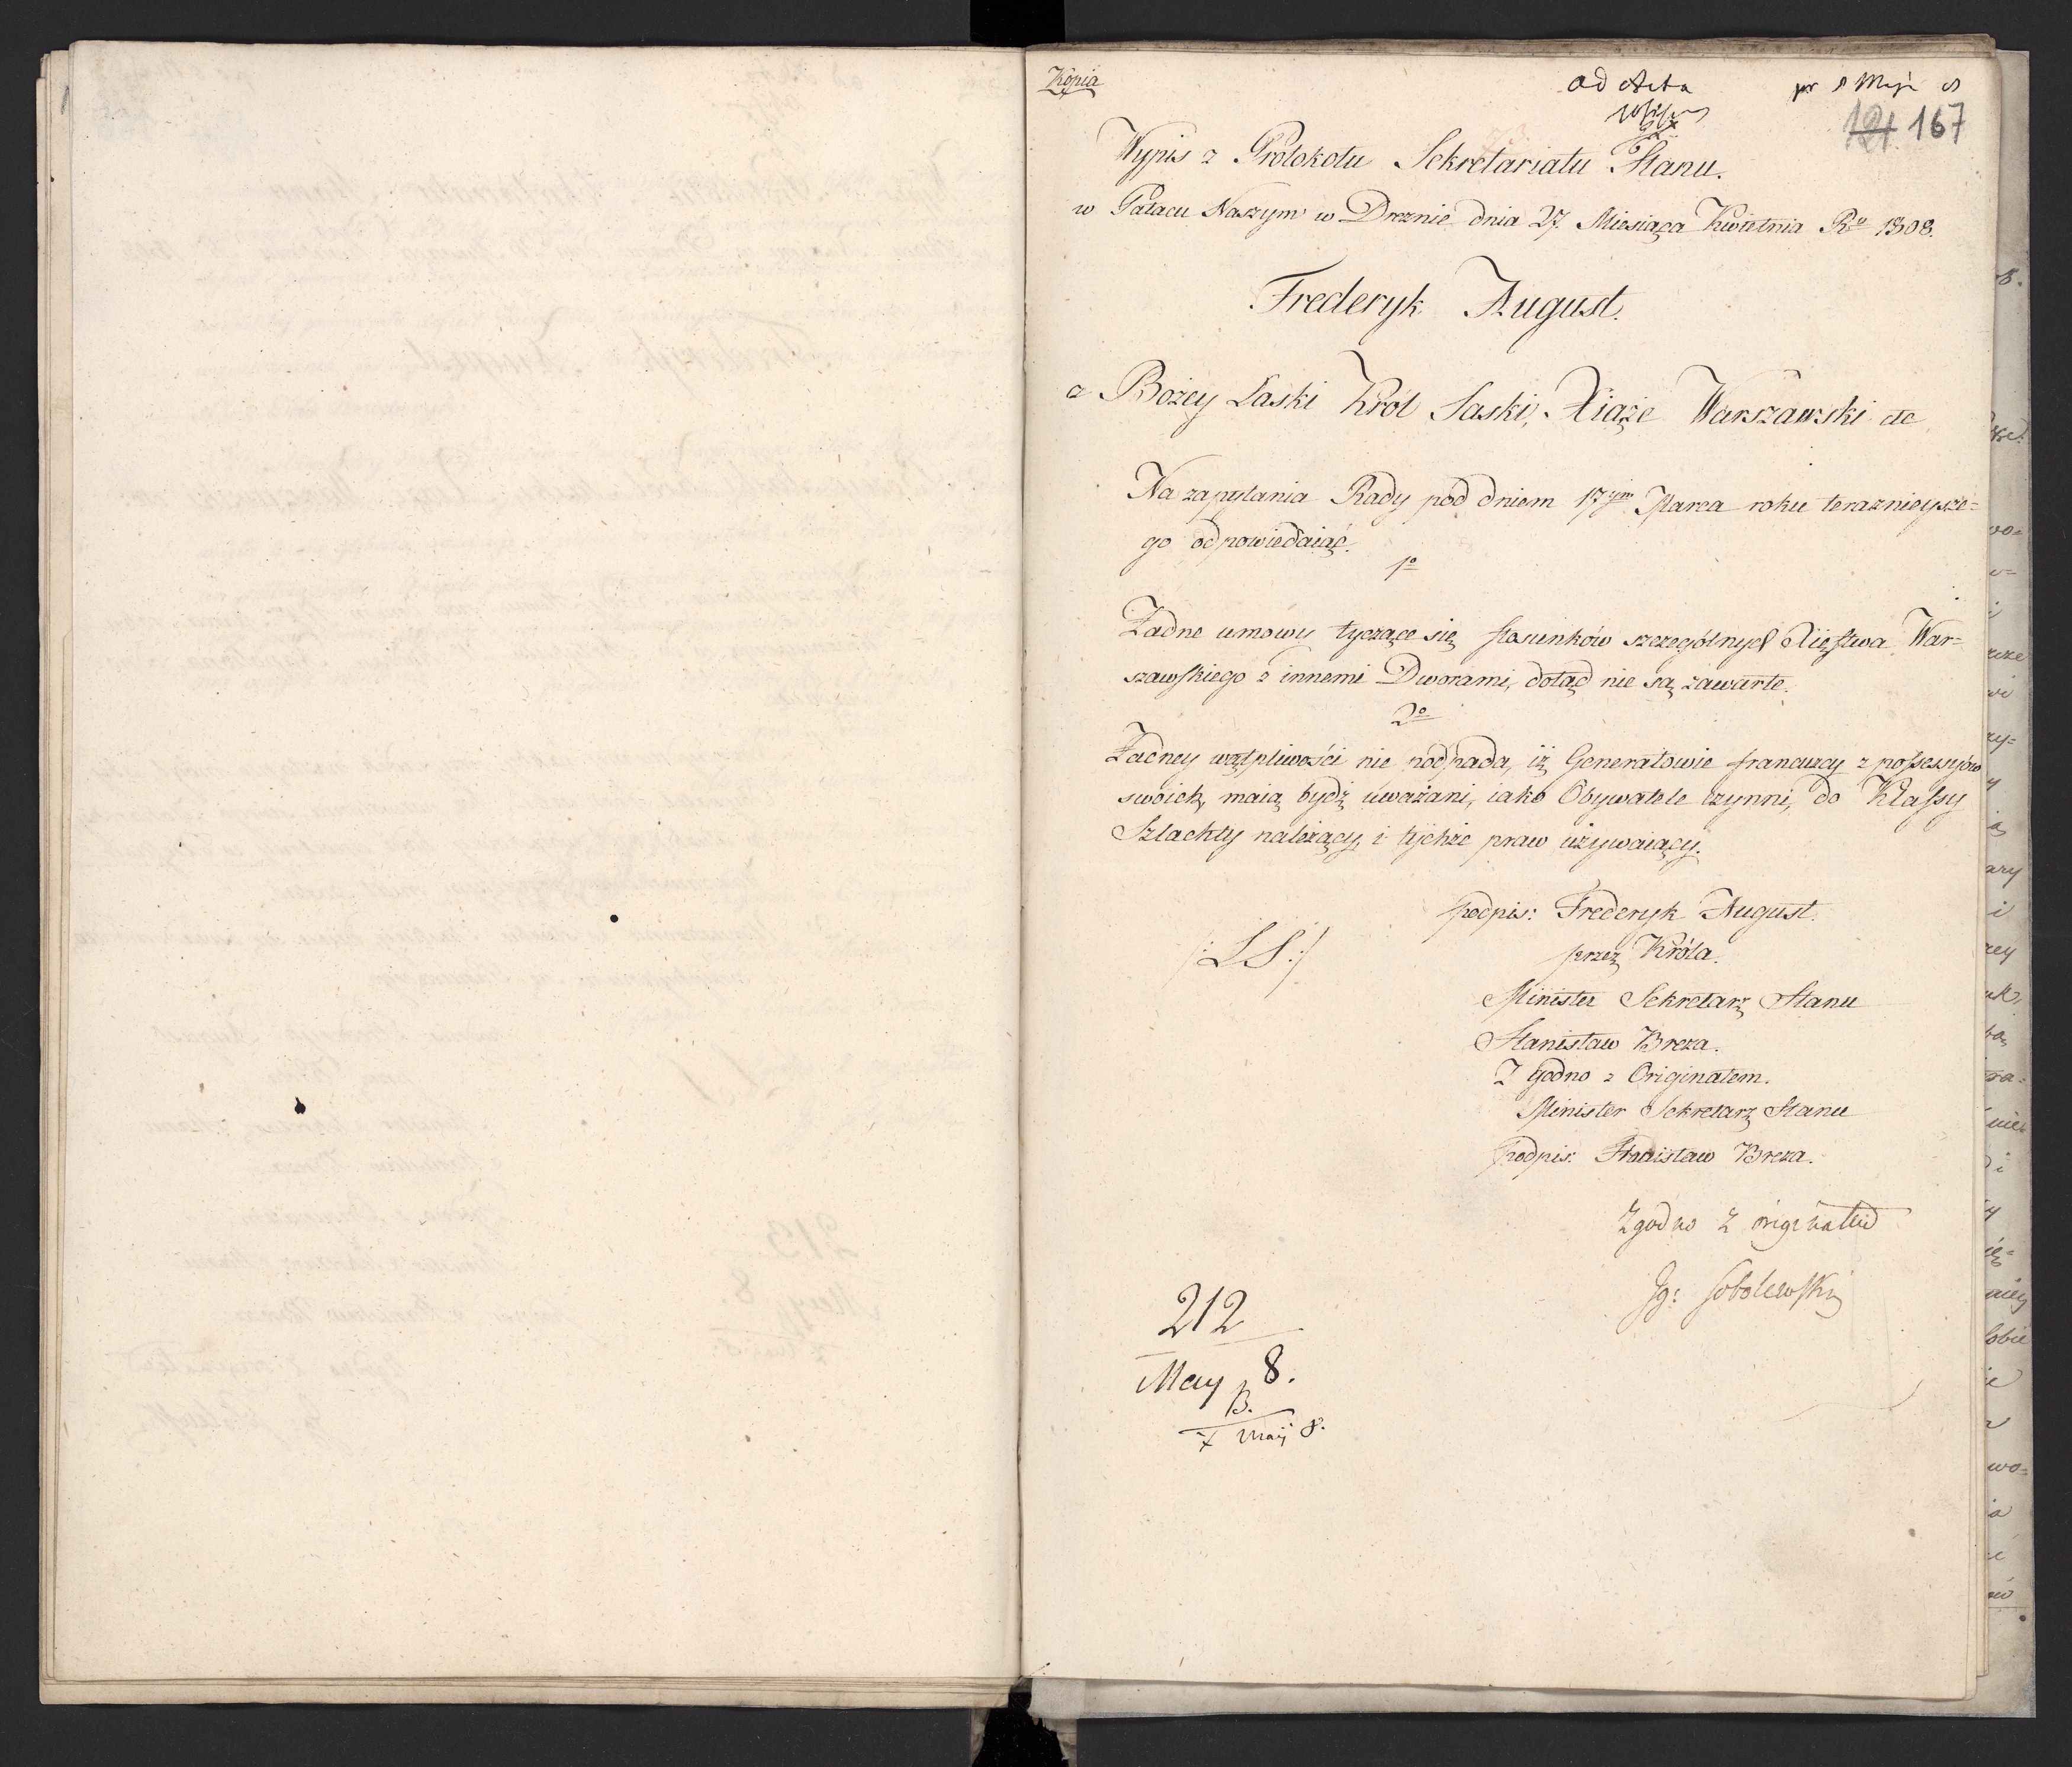 Kopia
ad Acta
pr 8 Maja 8
121. 167
Wypis z Protokołu Sekretariatu Stanu.
w Pałacu Naszym w Dreznie dnia 27. Miesiąca Kwietnia Ru 1808.
Frederyk August.
z Bożey Łaski Krol Saski, Xiąże Warszawski etc
Na zapytania Rady pod dniem 17ym Marca roku teraznieysze=
go odpowiedaiąć.
1o
Żadne umowy tyczące się stosunków szczególnych Xięstwa War=
szawskiego z innemi Dworami, dotąd nie są zawarte.
2o
Żadney wątpliwości nie podpada, iż Generałowie francuzcy z possessyów
swoich, maią bydź uważani, iako Obywatele czynni, do Klassy
Szlachty należący, i tychże praw używaiący.
podpis: Frederyk August.
/: LS :/
przez Króla.
Minister Sekretarz Stanu
Stanisław Breza.
Zgodno z Originałem.
Minister Sekretarz Stanu
podpis: Stanisław Breza.
Zgodno z originałem
Jg: Sobolewski
212
May 8.
B.
7 Maij 8.